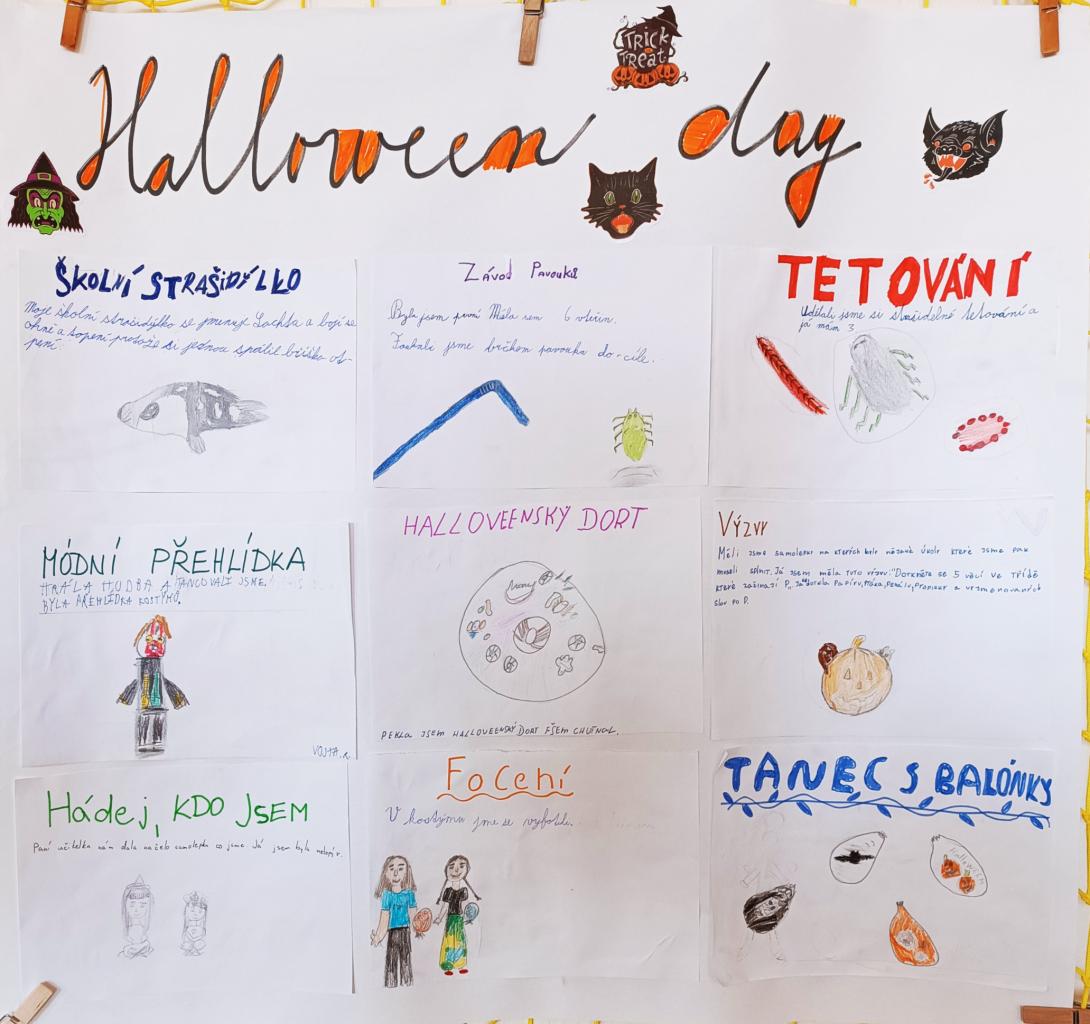 TRICK
OR
TREAT
Halloween day
ŠKOLNÍ STRAŠIDÝLKO
Moje školní strašidýlko se jmenuje Lachta a bojí se
ohně a topení protože si jednou spálil bříško o to-
pení.
Závod Pavouků
Byla jsem první Měla sem 6 vteřin.
Foukali jsme brčkem pavouka do cíle.
TETOVÁNÍ
Udělali jsme si strašidelné tetování a
já mám 3
MÓDNÍ PŘEHLÍDKA
HRÁLA HUDBA A TANCOVALI JSME.
BYLA PŘEHLÍDKA KOSTÝMŮ.
VOJTA.K.
HALLOVEENSKÝ DORT
PEKLA JSEM HALLOVEENSKÝ DORT FŠEM CHUTNAL.
Výzvy
Měli jsme samolepky na kterých byly nějaké úkoly které jsme pak
museli splnit. Já jsem měla tuto výzvu: "Dotkněte se 5 věcí ve třídě
které začínají P.
slov po P.
Hádej, KDO JSEM
Paní učitelka nám dala na čelo samolepku co jsme. Já jsem byla netopýr.
Focení
V kostýmu jme se vyfotili.
TANEC S BALÓNKY
Halloween